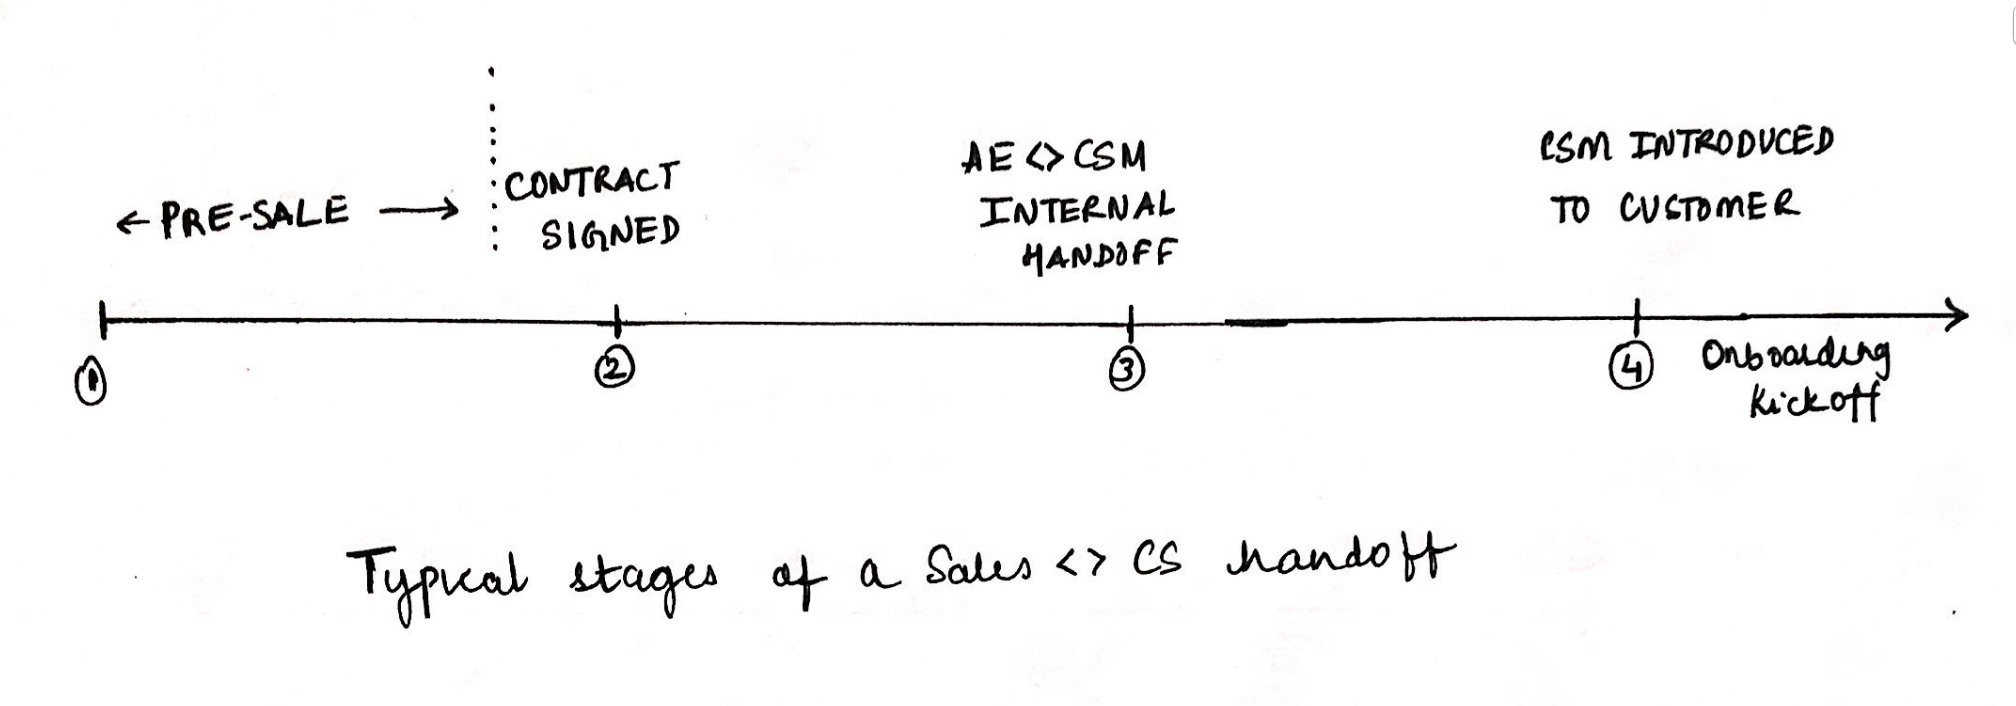 ← PRE-SALE →
CONTRACT
SIGNED
AE <> CSM
INTERNAL
HANDOFF
CSM INTRODUCED
TO CUSTOMER
1
2
3
4
Onboarding
Kickoff
Typical stages of a Sales <> CS handoff